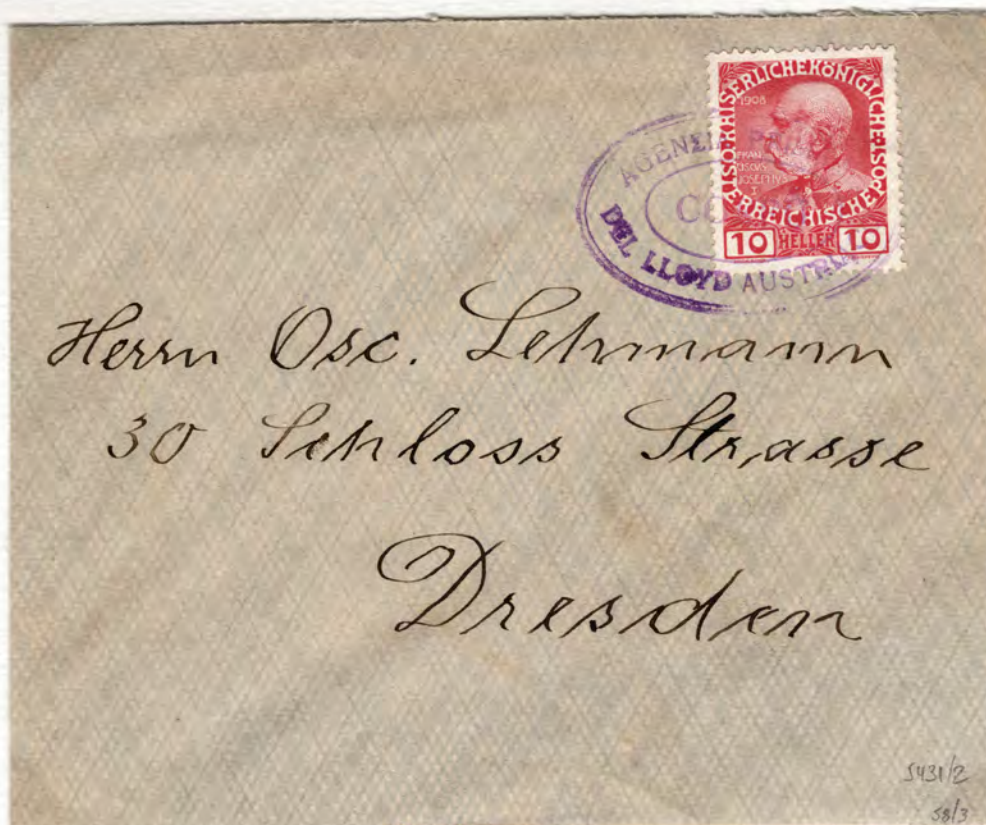 KAISERLICHE KÖNIGLICHE
ÖSTERREICHISCHE POST
1908
FRAN
CISCVS
JOSEPHVS
I
10 HELLER 10
AGENZIA
DEL LLOYD
Herrn Osc. Lehmann
30 Schloss Strasse
Dresden
5431/2
58/3